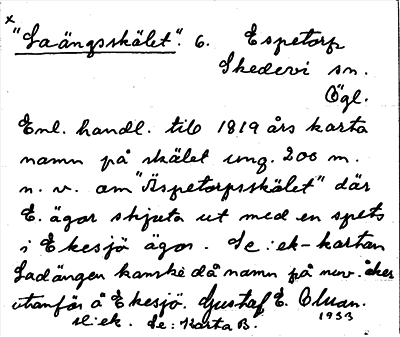 x
"Laängsskälet". 6. Espetorp
Skedevi sn.
Ögl.
Enl. handl. till 1819 års karta
namn på skälet ung. 200 m.
n. v. om "Äspetorpsskälet" där
E. ägor skjuta ut med en spets
i Ekesjö ägor. Se: ek-kartan
Ladängen kanske då namn på nuv. åker
utanför å Ekesjö. Gustaf E. Oluan.
sl: ek. Se: Karta B. 1933